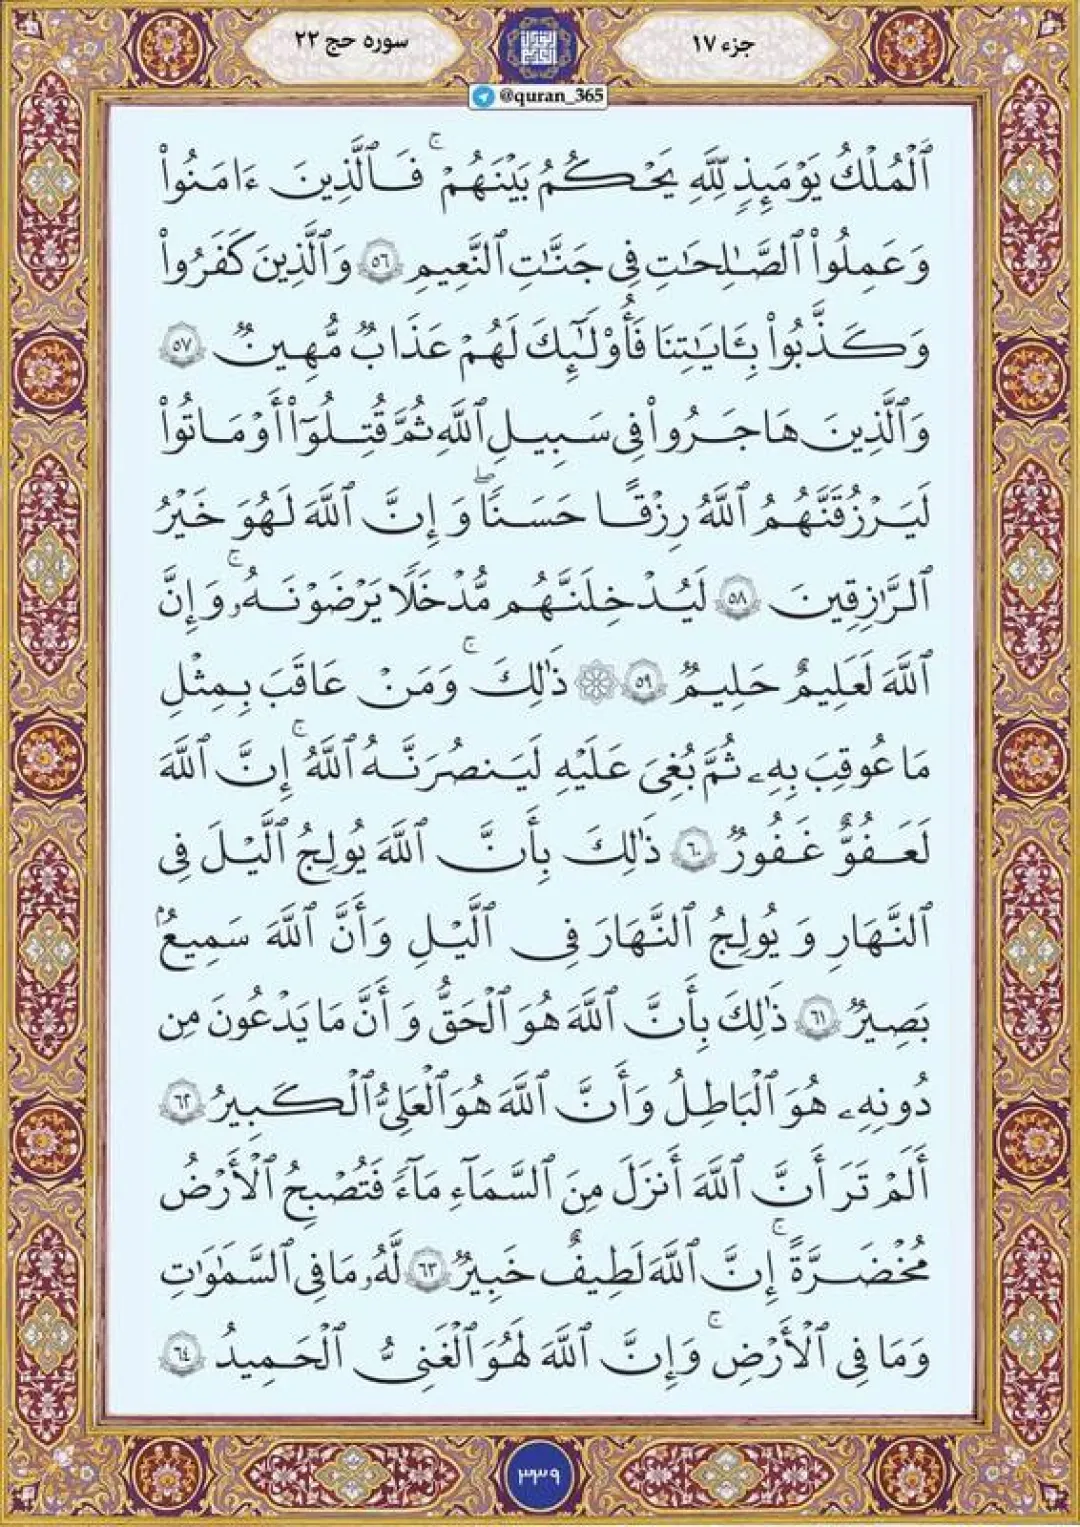 جزء ١٧
سوره حج ٢٢
@quran_365
ٱلْمُلْكُ يَوْمَئِذٍ لِّلَّهِ يَحْكُمُ بَيْنَهُمْ ۚ فَٱلَّذِينَ ءَامَنُوا۟
وَعَمِلُوا۟ ٱلصَّـٰلِحَـٰتِ فِى جَنَّـٰتِ ٱلنَّعِيمِ ٥٦ وَٱلَّذِينَ كَفَرُوا۟
وَكَذَّبُوا۟ بِـَٔايَـٰتِنَا فَأُو۟لَـٰٓئِكَ لَهُمْ عَذَابٌ مُّهِينٌ ٥٧
وَٱلَّذِينَ هَاجَرُوا۟ فِى سَبِيلِ ٱللَّهِ ثُمَّ قُتِلُوٓا۟ أَوْ مَاتُوا۟
لَيَرْزُقَنَّهُمُ ٱللَّهُ رِزْقًا حَسَنًا ۖ وَإِنَّ ٱللَّهَ لَهُوَ خَيْرُ
ٱلرَّٰزِقِينَ ٥٨ لَيُدْخِلَنَّهُم مُّدْخَلًا يَرْضَوْنَهُۥ ۚ وَإِنَّ
ٱللَّهَ لَعَلِيمٌ حَلِيمٌ ٥٩ ۞ ذَٰلِكَ ۚ وَمَنْ عَاقَبَ بِمِثْلِ
مَا عُوقِبَ بِهِۦ ثُمَّ بُغِىَ عَلَيْهِ لَيَنصُرَنَّهُ ٱللَّهُ ۚ إِنَّ ٱللَّهَ
لَعَفُوٌّ غَفُورٌ ٦٠ ذَٰلِكَ بِأَنَّ ٱللَّهَ يُولِجُ ٱلَّيْلَ فِى
ٱلنَّهَارِ وَيُولِجُ ٱلنَّهَارَ فِى ٱلَّيْلِ وَأَنَّ ٱللَّهَ سَمِيعٌۢ
بَصِيرٌ ٦١ ذَٰلِكَ بِأَنَّ ٱللَّهَ هُوَ ٱلْحَقُّ وَأَنَّ مَا يَدْعُونَ مِن
دُونِهِۦ هُوَ ٱلْبَاطِلُ وَأَنَّ ٱللَّهَ هُوَ ٱلْعَلِىُّ ٱلْكَبِيرُ ٦٢
أَلَمْ تَرَ أَنَّ ٱللَّهَ أَنزَلَ مِنَ ٱلسَّمَآءِ مَآءً فَتُصْبِحُ ٱلْأَرْضُ
مُخْضَرَّةً ۗ إِنَّ ٱللَّهَ لَطِيفٌ خَبِيرٌ ٦٣ لَّهُۥ مَا فِى ٱلسَّمَـٰوَٰتِ
وَمَا فِى ٱلْأَرْضِ ۗ وَإِنَّ ٱللَّهَ لَهُوَ ٱلْغَنِىُّ ٱلْحَمِيدُ ٦٤
٣٣٩